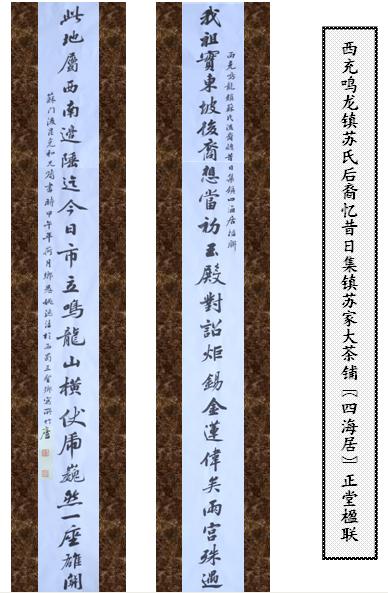 西充鸣龙镇苏氏后裔忆昔日集镇苏家大茶铺〔四海居〕正堂楹联
西充鳴龍鎮蘇氏後裔憶昔日集鎮四海居楹聯
我祖實東坡後裔想當初玉殿對詔炬錫金蓮偉矣兩宮殊遇
此地屬西南邊陲迄今日市立鳴龍山橫伏虎巍然一座雄關
書時甲午年荷月